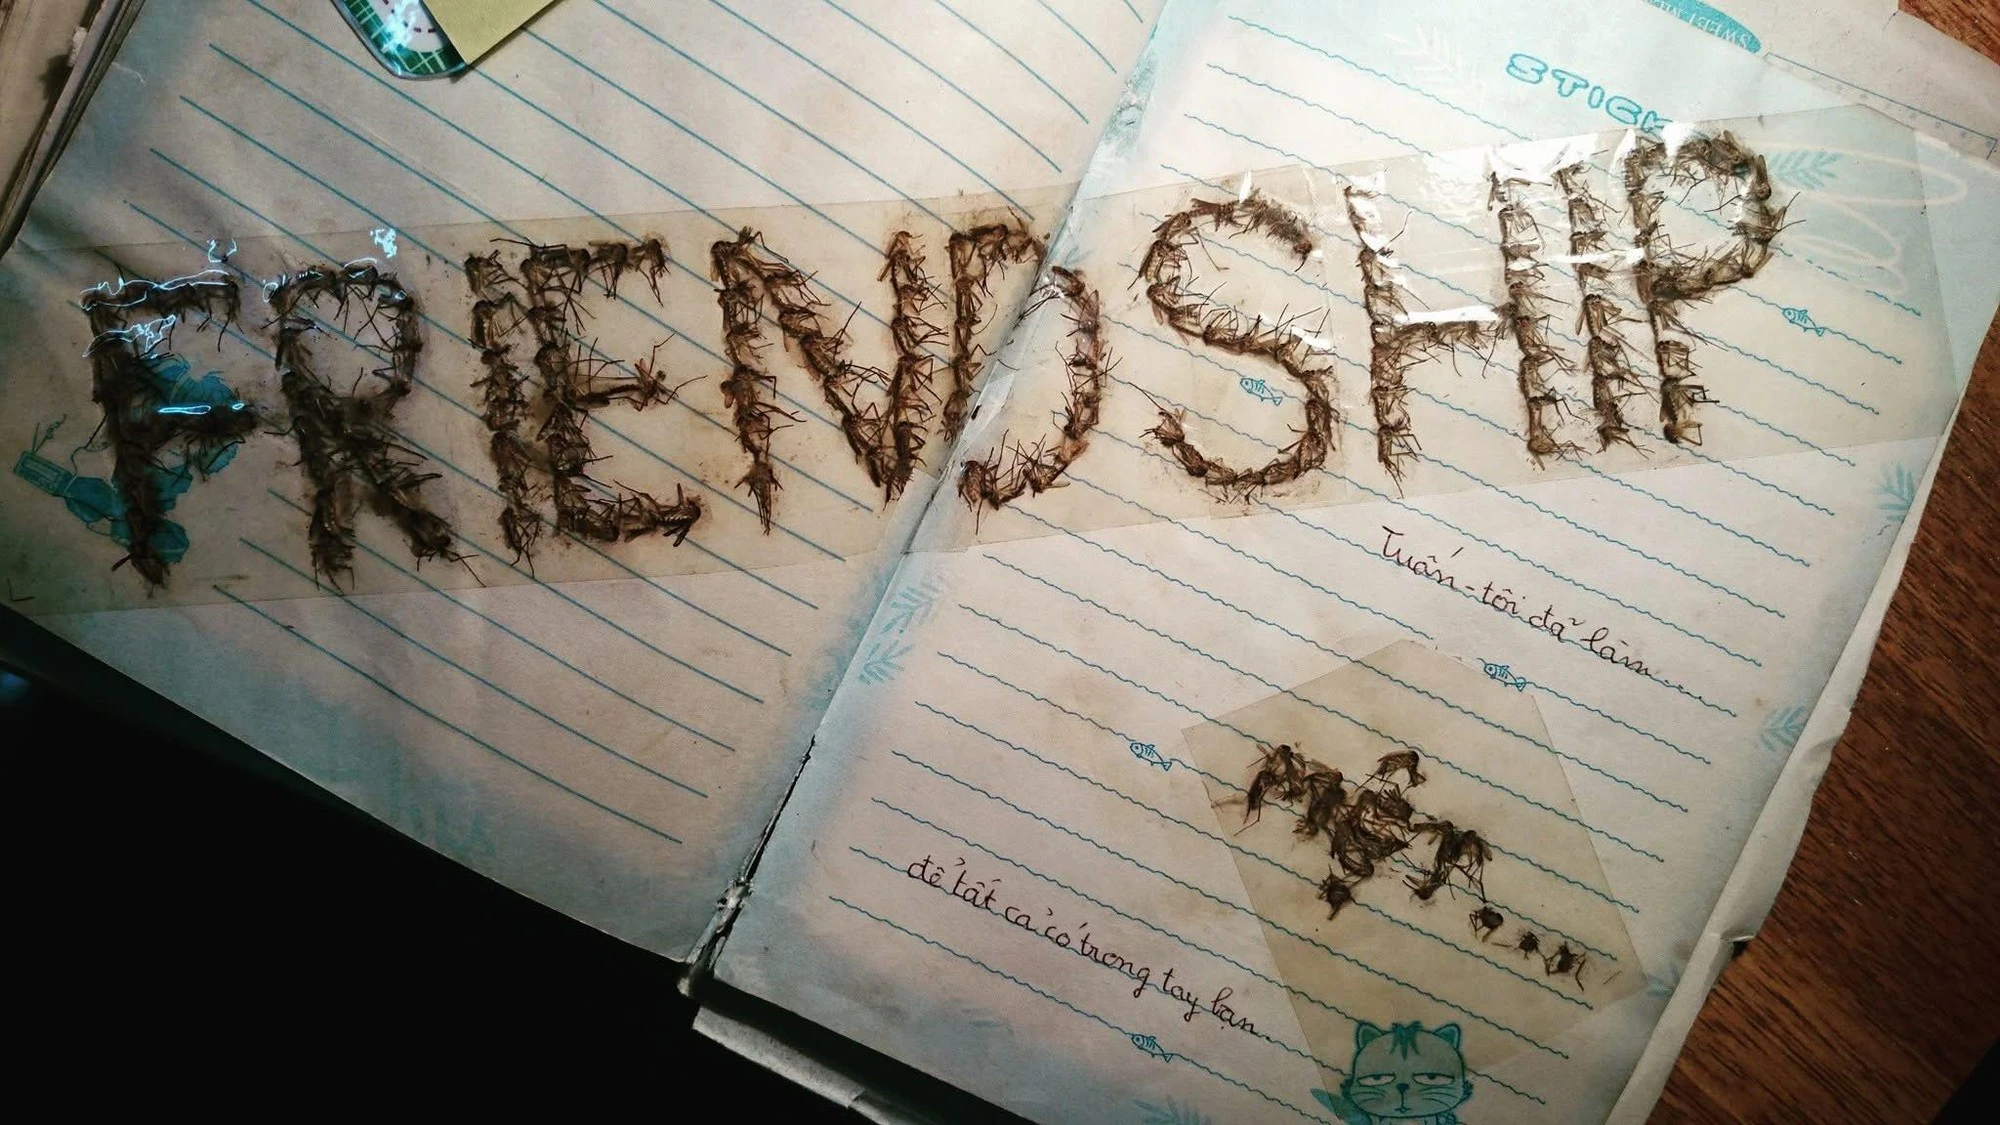 STICK
FRIENDSHIP
Tuấn - tôi đã làm......
để tất cả có trong tay bạn..